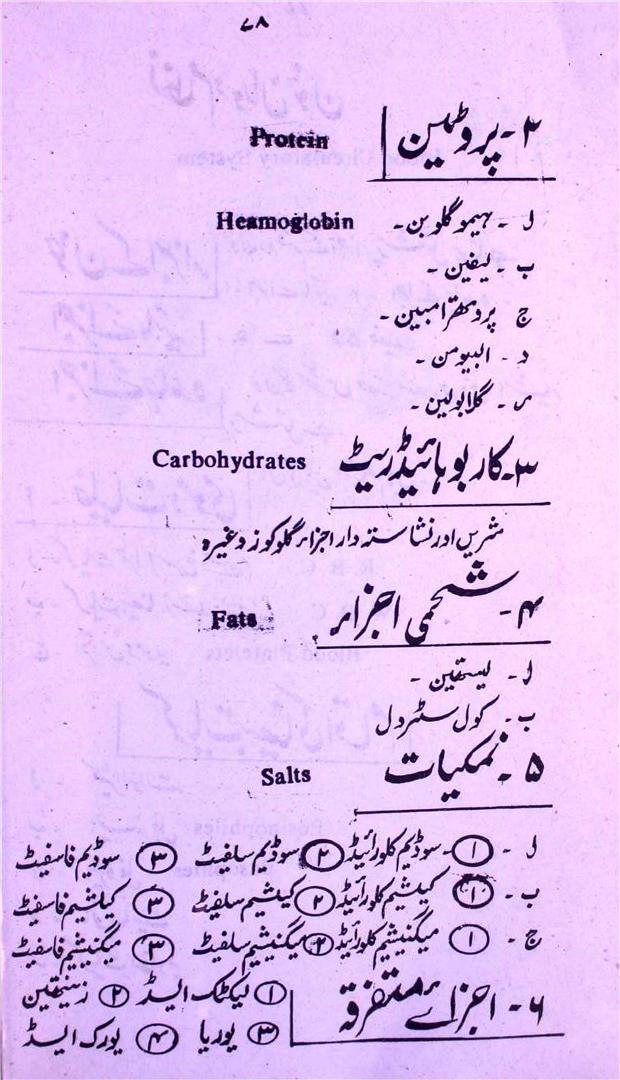 ۷۸
۲- پروٹین Protein
ل - ہیموگلوبن - Heamoglobin
ب - لیفین -
ج پروتھرامبین -
د - البیومن -
ر - گلابولین -
۳- کاربوہائیڈریٹ Carbohydrates
شریں اور نشاستہ دار اجزاء گلوکوز وغیرہ
۴- شحمی اجزاء Fats
ل - لیستھین -
ب - کول سٹردل
۵ - نمکیات Salts
ل - ۱ - سوڈیم کلورائیڈ ۲ سوڈیم سلفٹ ۳ سوڈیم فاسفیٹ
ب - ۱ کیلشیم کلورائیڈ ۲ کیلشیم سلفیٹ ۳ کیلشیم فاسفیٹ
ج - ۱ میگنیشیم کلورائیڈ ۲ میگنیشیم سلفیٹ ۳ میگنیشیم فاسفیٹ
۶ - اجزائے متفرقہ ۱ لیکٹک ایسڈ ۲ زینتھین
۳ یوریا ۴ یورک ایسڈ